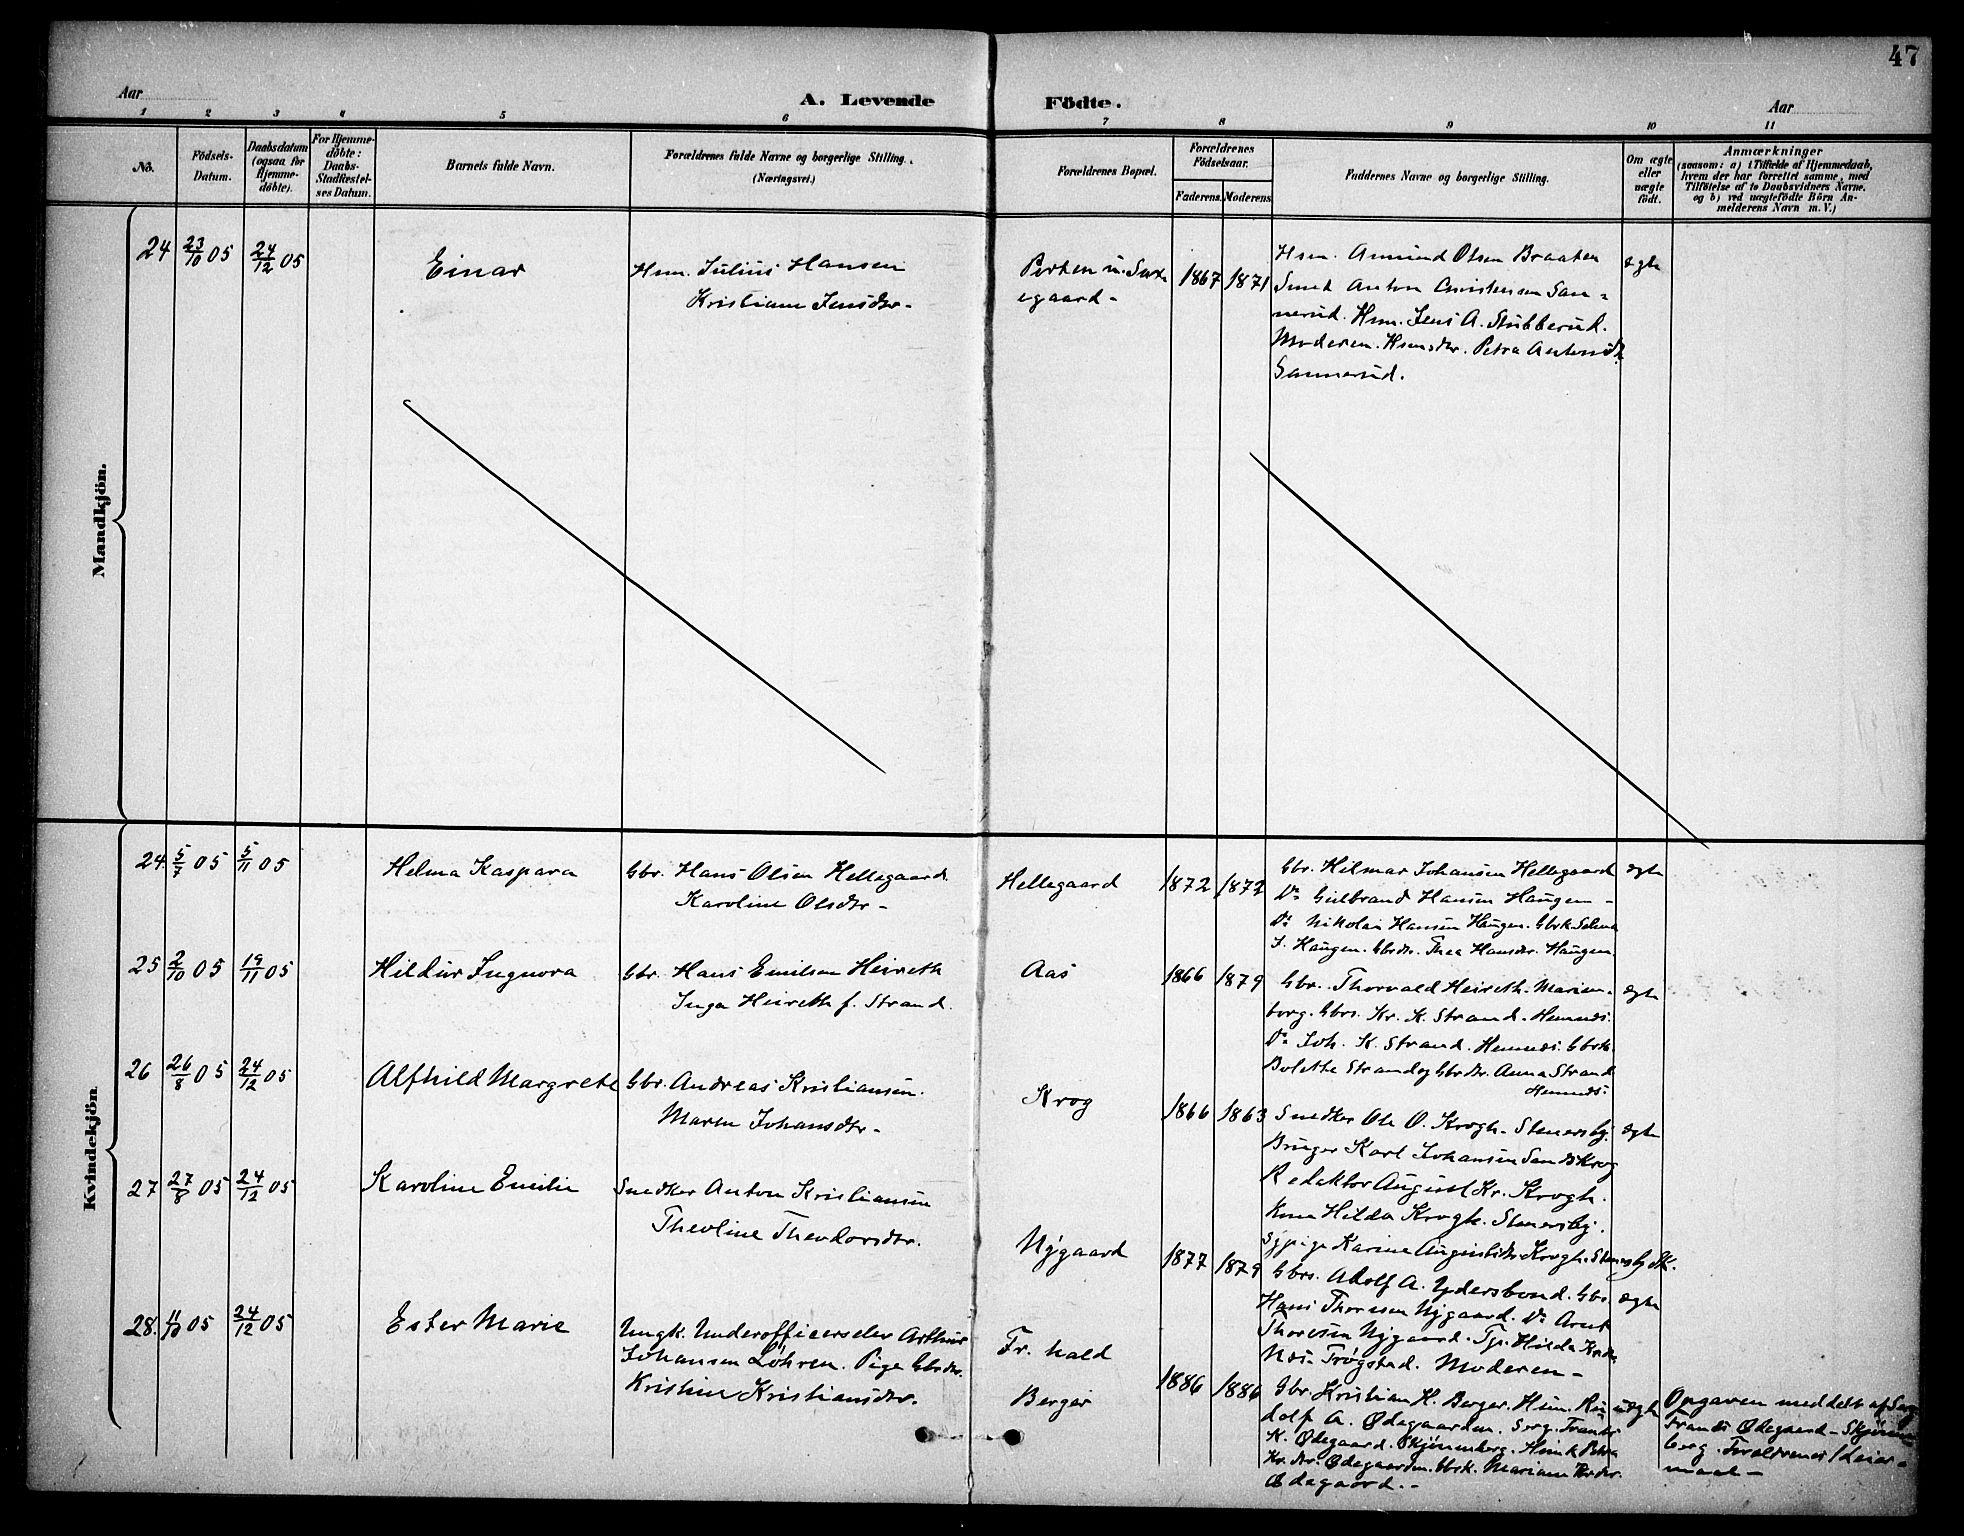 47
Aar
A. Levende Födte.
Aar
1 2 3 4 5 6 7 8 9 10 11
No.
Födsels-
Datum.
Daabsdatum
(ogsaa for
Hjemme-
döbte).
For Hjemme-
döbte:
Daabs-
Stadfæstel-
ses Datum.
Barnets fulde Navn.
Forældrenes fulde Navne og borgerlige Stilling.
(Næringsvei.)
Forældrenes Bopæl.
Forældrenes
Födselsaar.
Faderens. Moderens.
Faddernes Navne og borgerlige Stilling.
Om ægte
eller
uægte
født.
Anmærkninger
(saasom: a) i Tilfælde af Hjemmedaab,
hvem der har forrettet samme, med
Tilføielse af to Daabsvidners Navne.
og b) ved uægtefödte Börn An-
melderens Navn m. V.)
Mandkjön.
24 23/10 05 24/12 05
Einar
Hsm. Julius Hansen
Kristiane Jensdtr -
egaard -
1867 1871
Hsm. Amund Olsen Braaten
Smed Anton Christensen San-
nerud. Hsm. Jens A. Stubberud.
Moderen. Hsmsdtr. Petra Antonsdtr
Sannerud.
ægte
Kvindekjön
24 5/7 05 5/11 05
Helma Kaspara
Gbr. Hans Olsen Hellegaard
Karoline Olsdtr -
Hellegaard
1872 1872
Gbr. Hilmar Johansen Hellegaard
Do Gulbrand Hansen Haugen -
Do Nikolai Hansen Haugen. Gbrk.
J. Haugen. Gbrdtr. Thea Hansdtr. Haugen.
ægte
25 2/10 05 19/11 05
Hildur Ingnora
Gbr. Hans Emilsen Heireth
Inga Heireth f. Strand.
Aas
1866 1879
Gbr. Thorvald Heireth. Marien-
borg. Gbrs. Kr. K. Strand. Hemnes.
Do Joh. K. Strand. Hemnes. Gbrk.
Bolette Strand og Gbrdtr. Anna Strand
Hemnes.
ægte
26 26/8 05 24/12 05
Alfhild Margrete
Gbr. Andreas Kristiansen.
Maren Johansdtr -
Krog
1866 1863
Snedker Ole O. Krogh. Stenersby.
Bruger Karl Johansen Sandskrog
Redaktør August Kr. Krogh.
Kone Hilda Krogh. Stenersby.
Sypige Karine Krogh.
ægte
27 27/8 05 24/12 05
Karoline Emilie
Snedker Anton Kristiansen
Theoline Theodorsdtr.
Nygaard
1877 1879
Gbrs. Adolf A. Ydersbond. Gbr.
Hans Thoresen Nygaard. Do Arnt
Thoresen Nygaard. Tjp. Hilda
Trøgstad. Moderen -
ægte
28. 11/10 05 24/12 05
Ester Marie
Ungk. Underofficerselev Arthur
Johansen Løhren. Pige Gbrdtr.
Kristine Kristiansdtr.
Fr. hald
Berger
1886 1886
Gbr. Kristian H. Berger. Hsm. Ru-
dolf A. Ødegaarden. Serg. Frants
K. Ødegaard. Skjønnerberg. Hsmk. Petra
Kr.dtr. Ødegaarden. Gbrk. Mariane
Ødegaard. -
uægte
Opgaven meddelt af Serg.
Frants Ødegaard - Skjønner-
berg. Forældrenes 1ste Leier-
maal -